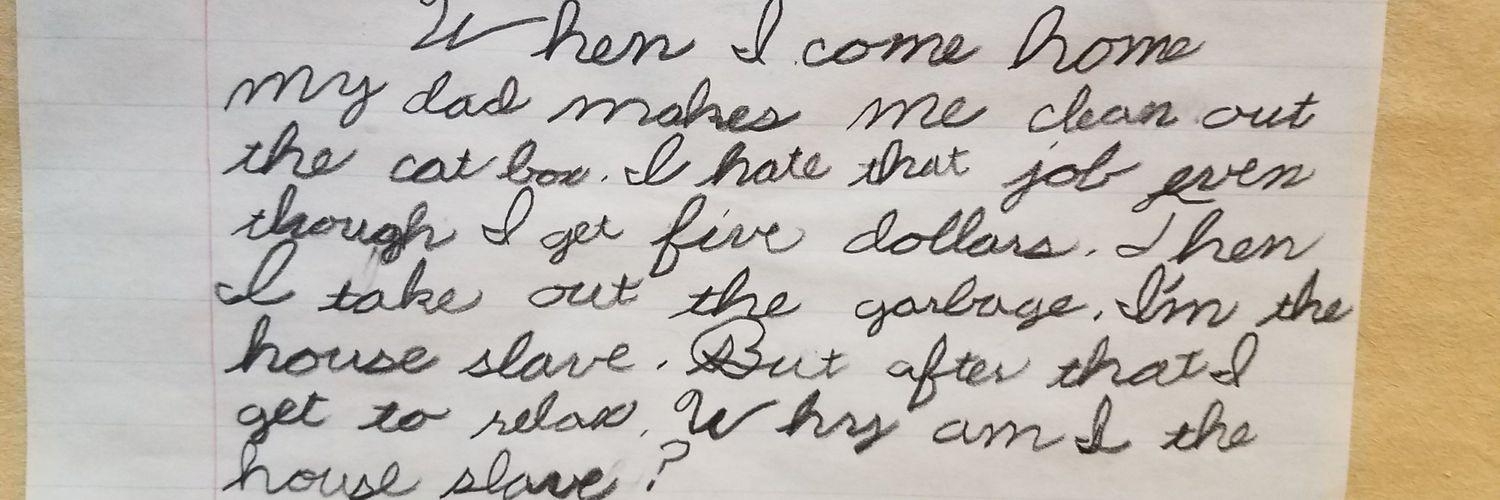 When I come home
my dad makes me clean out
the cat box. I hate that job even
though I get five dollars. Then
I take out the garbage. I'm the
house slave. But after that I
get to relax. Why am I the
house slave?